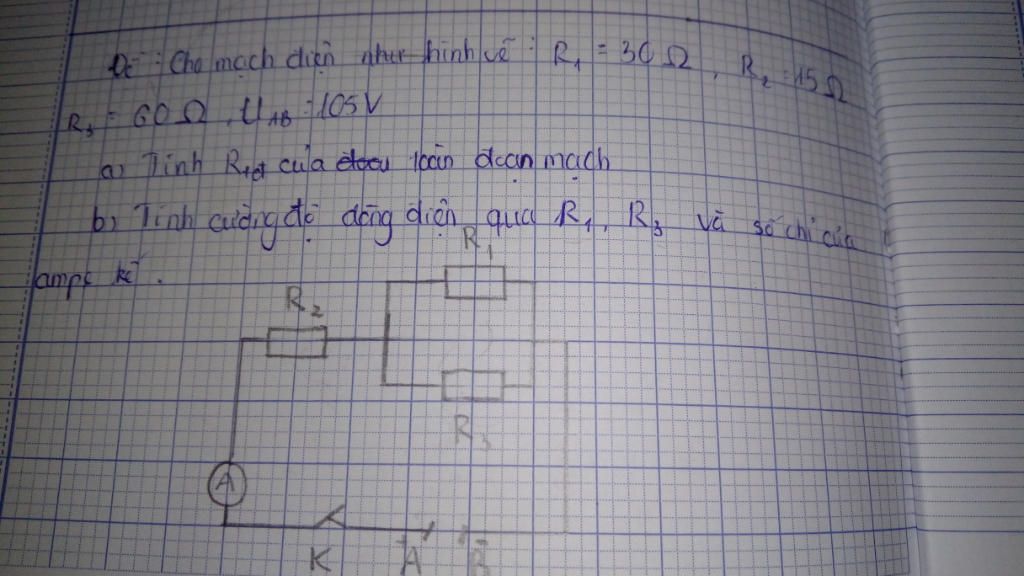 Đề : Cho mạch điện như hình vẽ : R₁ = 30 Ω , R₂ = 15 Ω
R₃ = 60 Ω , U_AB = 105V
a) Tính Rtđ của toàn đoạn mạch
b) Tính cường độ dòng điện qua R₁, R₃ và số chỉ của
ampe kế .
R₁
R₂
R₃
A
K
+ A
B -